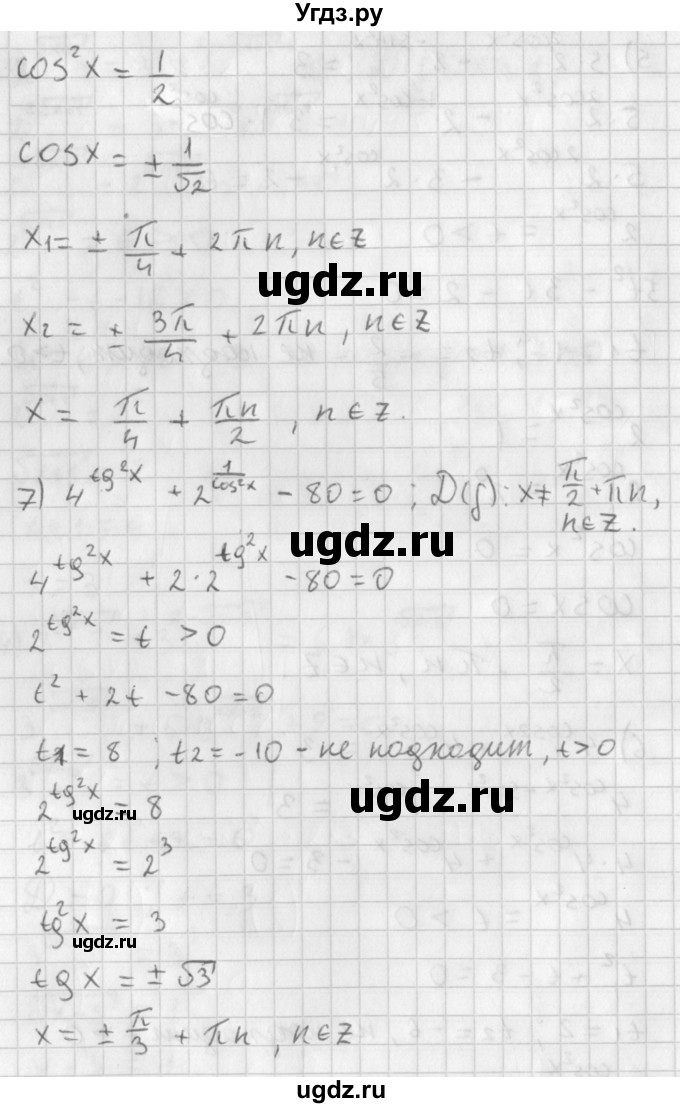 Угдз.ру
cos²x = 1/2
cosx = ± 1/√2
x₁ = ± π/4 + 2πn, n∈Z
ugdz.ru
x₂ = ± 3π/4 + 2πn, n∈Z
ugdz.ru
x = π/4 + πn/2, n∈Z.
7) 4^(tg²x) + 2^(1/cos²x) - 80 = 0; D(y): x ≠ π/2 + πn,
n∈Z.
ugdz.ru
4^(tg²x) + 2·2^(tg²x) - 80 = 0
2^(tg²x) = t > 0
t² + 2t - 80 = 0
t₁ = 8; t₂ = -10 - не подходит, t>0
2^(tg²x) = 8
ugdz.ru
ugdz.ru
2^(tg²x) = 2³
tg²x = 3
ugdz.ru
tgx = ±√3
x = ± π/3 + πn, n∈Z
ugdz.ru